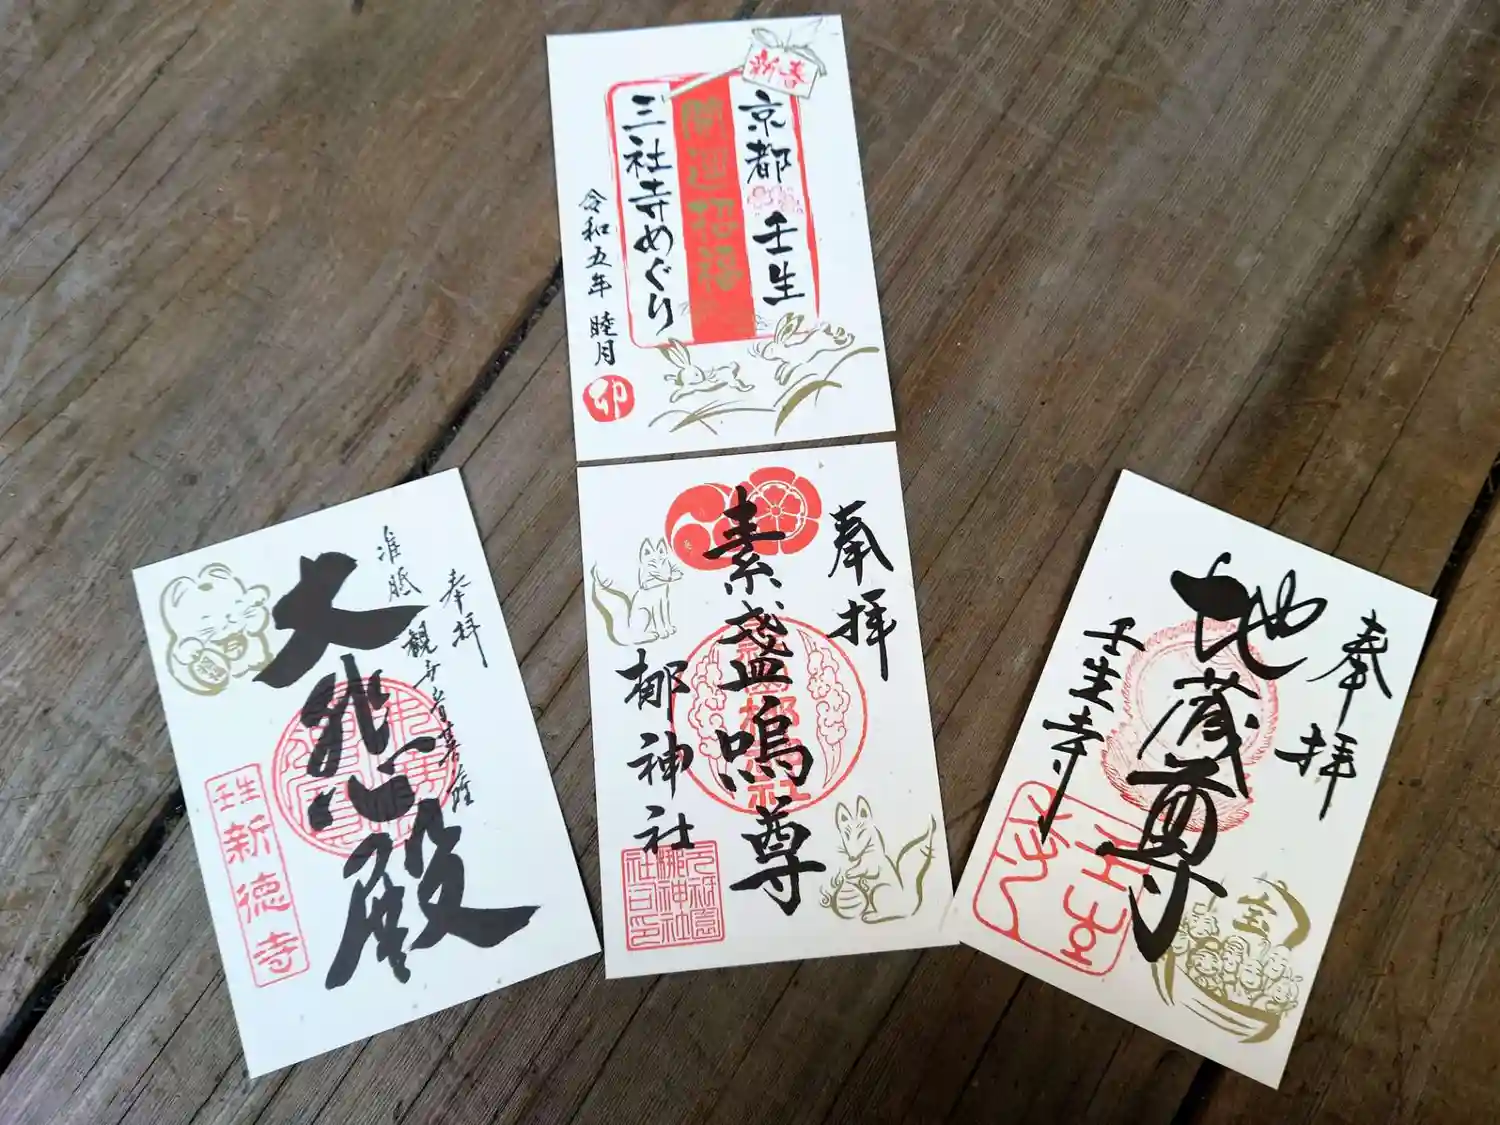 新春
京都 壬生
開運招福
三社寺めぐり
令和五年 睦月
卯
奉拝
准胝観音菩薩
大悲殿
壬生
新徳寺
奉拝
素盞嗚尊
梛神社
元祇園
梛神社
社司之印
奉拝
地蔵尊
壬生寺
宝